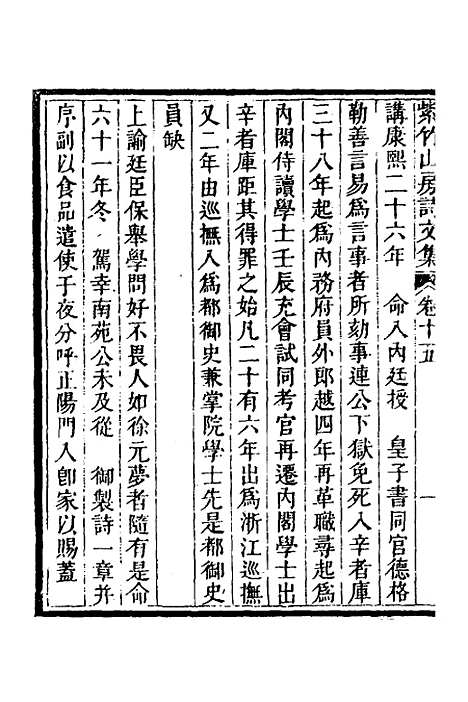 紫竹山房詩文集 卷十五 一
講康熙二十六年 命入內廷授 皇子書同官德格
勒善言易爲言事者所劾事連公下獄免死入辛者庫
三十八年起爲內務府員外郎越四年再革職尋起爲
內閣侍讀學士壬辰充會試同考官再遷內閣學士出
辛者庫距其得罪之始凡二十有六年出爲浙江巡撫
又二年由巡撫入爲都御史兼掌院學士先是都御史
員缺
上諭廷臣保舉學問好不畏人如徐元夢者隨有是命
六十一年冬 駕幸南苑公未及從 御製詩一章并
序副以食品遣使于夜分呼正陽門入卽家以賜蓋